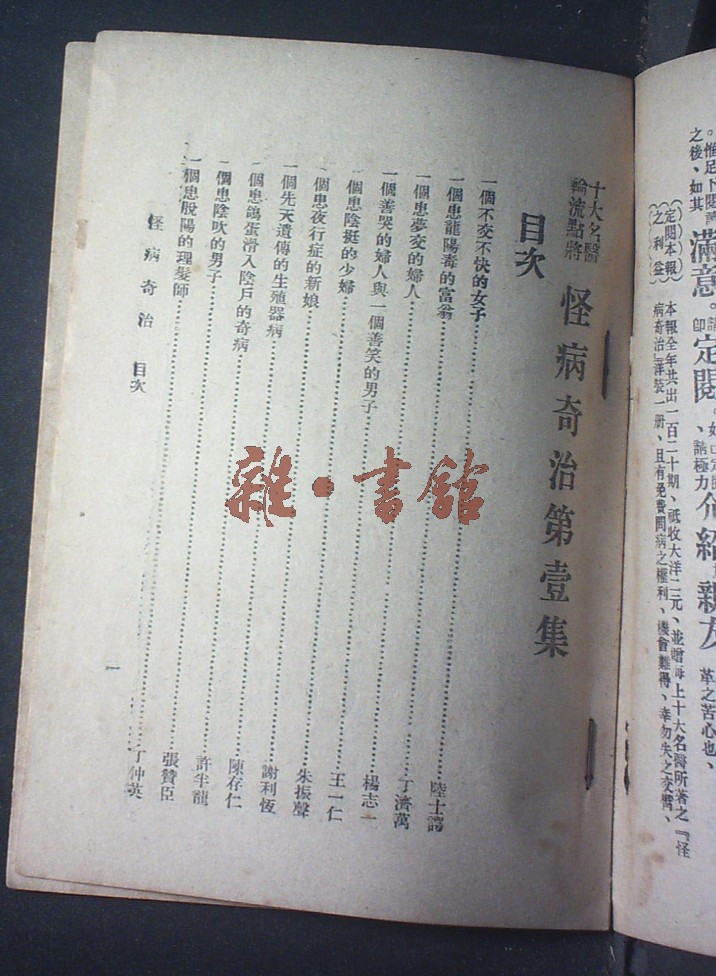 。惟足下閱
之後、如其
滿意。
定閱、
請極力
介紹親友
革之苦心也、
定閱本報
之利益
本報全年共出一百二十期、祗收大洋二元、並贈海上十大名醫所著之『怪
病奇治』洋裝一册、且有免費問病之權利、機會難得、幸勿失之交臂、
十大名醫
輪流點將
怪病奇治第壹集
目次
一個不交不快的女子……陸士諤
一個患龍陽毒的富翁……丁濟萬
一個患夢交的婦人……楊志一
一個善哭的婦人與一個善笑的男子……王一仁
一個患陰挺的少婦……朱振聲
一個患夜行症的新娘……謝利恆
一個先天遺傳的生殖器病……陳存仁
一個患鴿蛋滑入陰戶的奇病……許半龍
一個患陰吹的男子……張贊臣
一個患脫陽的理髮師……丁仲英
怪病奇治 目次
一
雜·書館